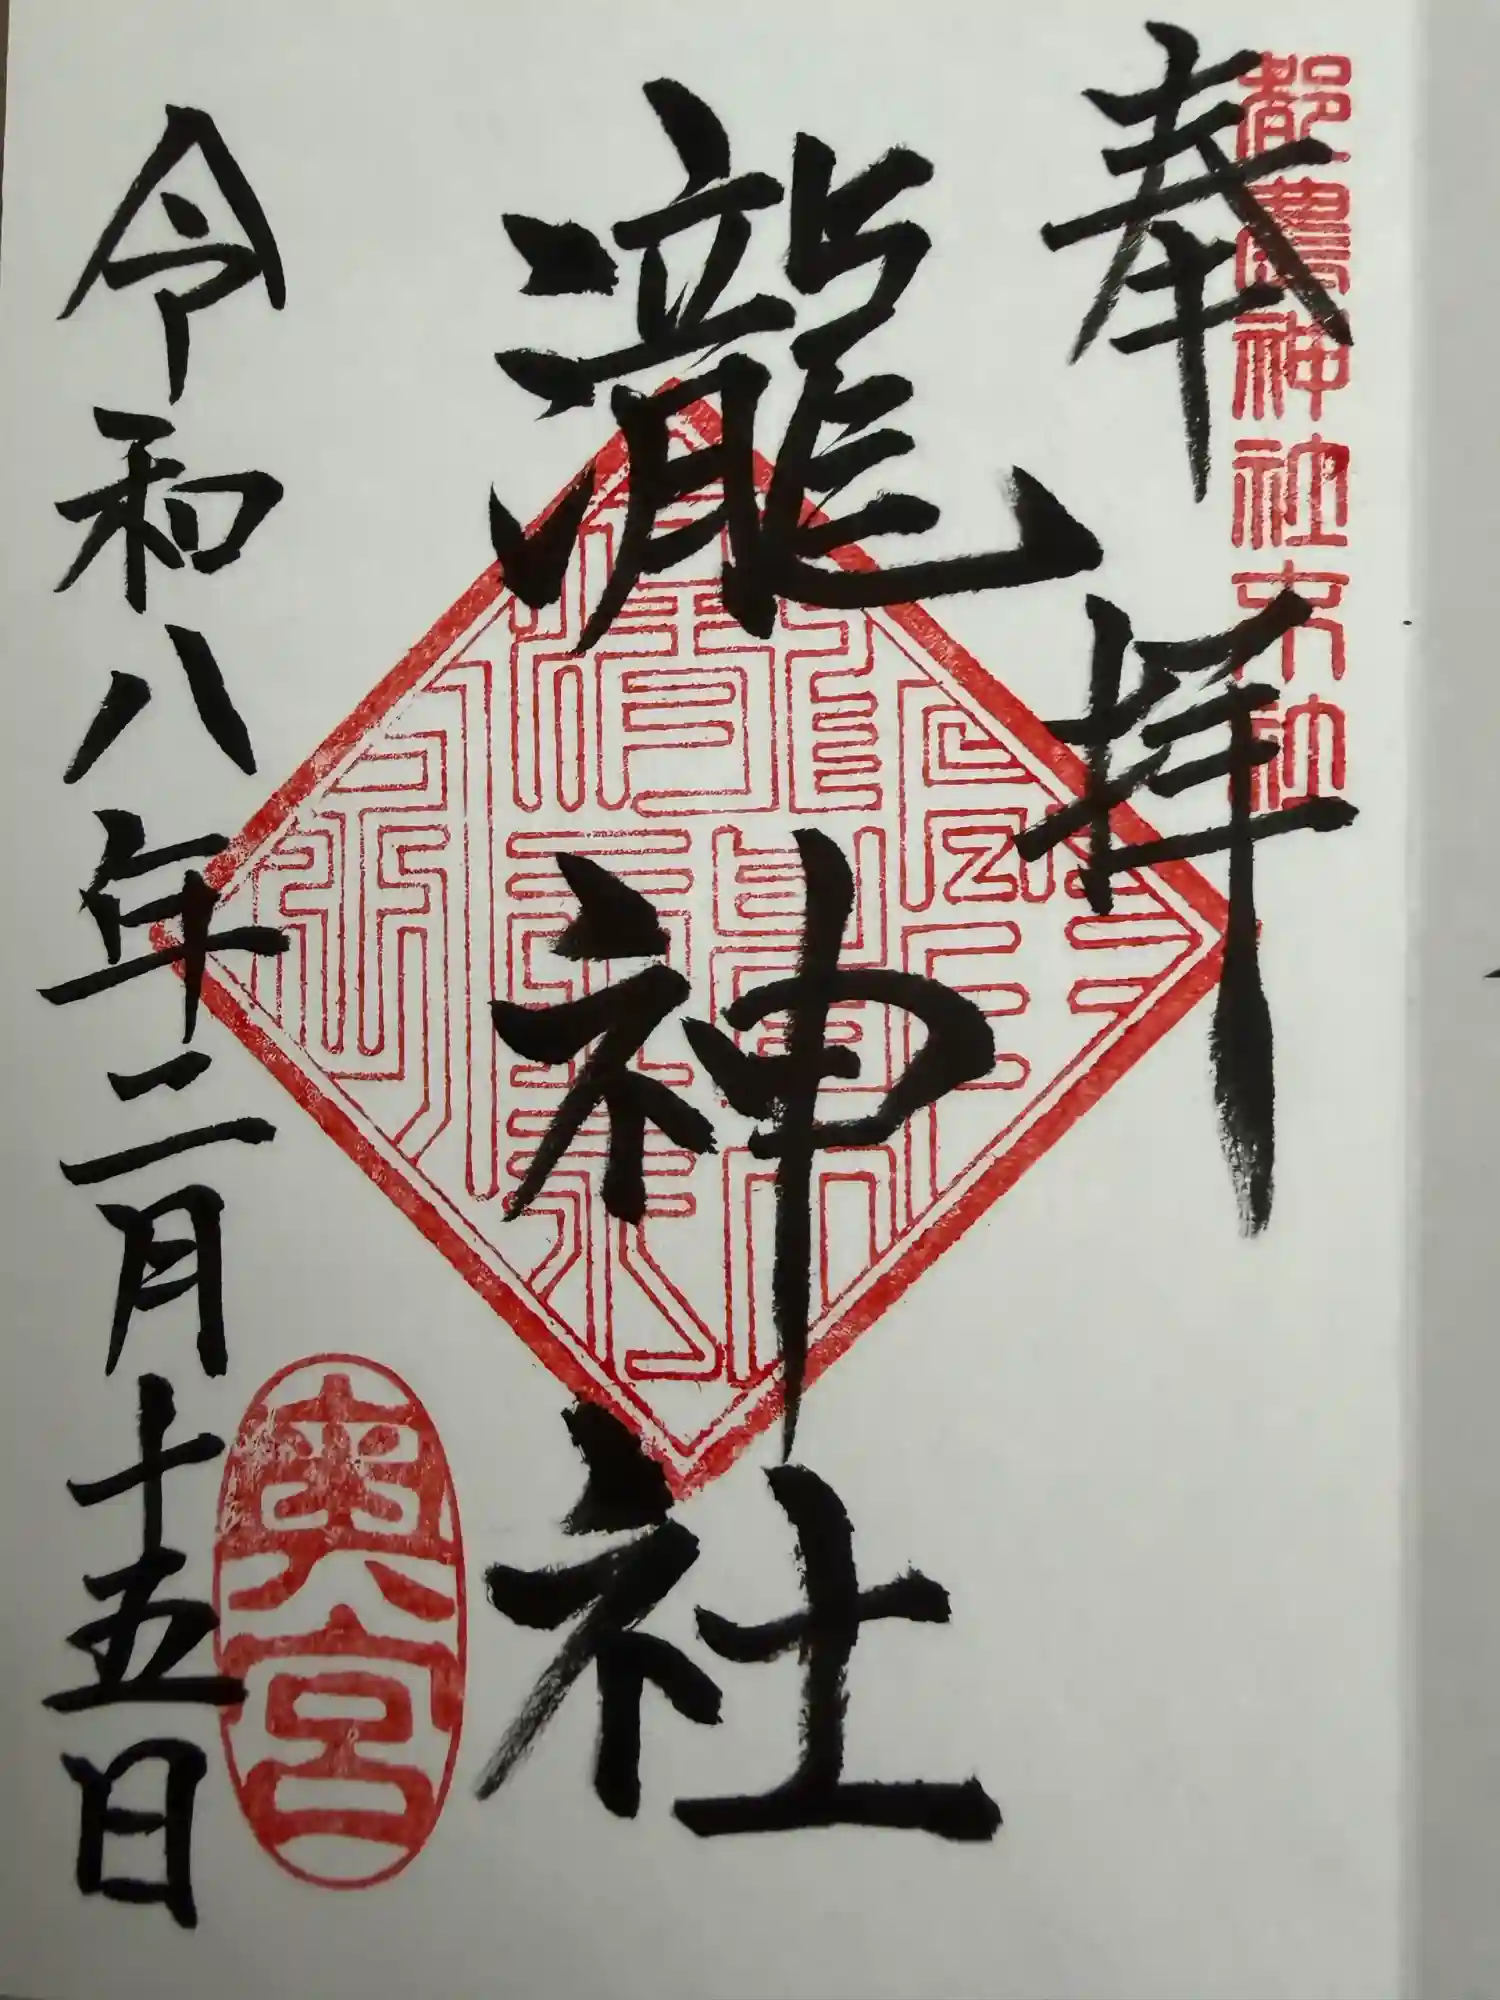 奉拝
都農神社末社
瀧神社
奥宮
令和八年二月十五日